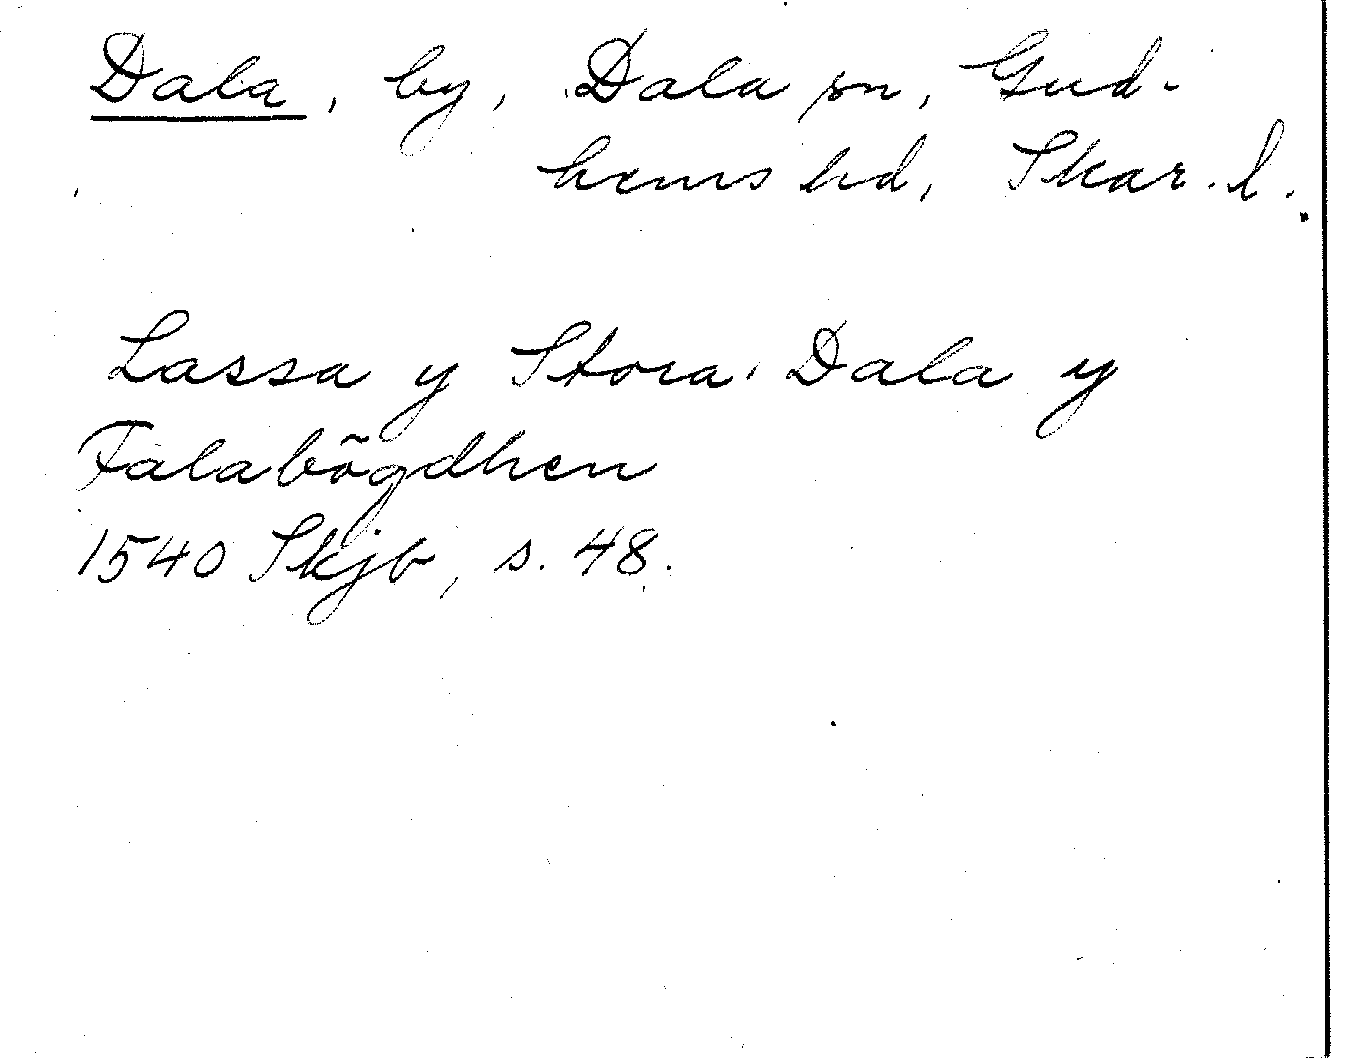 Dala, by, Dala sn, Gud-
hems hd, Skar. l.
Lassa y Stora Dala y
Falabõgdhen
1540 Skjb, s. 48.